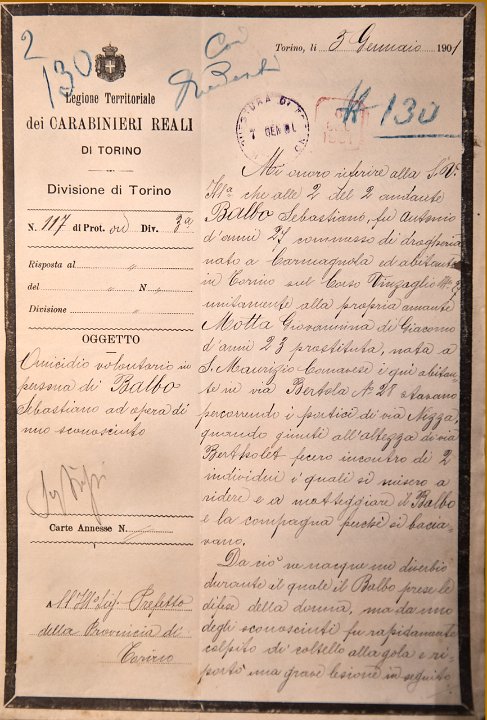 2
130
Legione Territoriale
dei CARABINIERI REALI
DI TORINO
Divisione di Torino
N. 117 di Prot. Div. 3ª
Risposta al „
del „ N „
Divisione „
OGGETTO
Omicidio volontario in
persona di Balbo
Sebastiano ad opera di
uno sconosciuto
Carte Annesse N.
All'Ill.º Sig. Prefetto
della Provincia di
Torino
Torino, li 3 Gennaio 1901
130
QUESTURA DI TORINO
7 GEN 01
Mi onoro riferire alla S.V.
Ill.ª che alle 2 del 2 andante
Balbo Sebastiano, fu Antonio
d'anni 27 commesso di drogheria
nato a Carmagnola ed abitante
in Torino sul Corso Vinzaglio Nº
unitamente alla propria amante
Motta Giovannina di Giacomo
d'anni 23 prostituta, nata a
S. Maurizio Canavese i qui abitan-
te in via Bertola Nº 28 stavano
percorrendo i portici di via Nizza,
quando giunti all'altezza di via
Berthollet fecero incontro di 2
individui i quali si misero a
ridere e a motteggiare il Balbo
e la compagna perchè si bacia-
vano.
Da ciò ne nacque un diverbio
durante il quale il Balbo prese le
difese della donna, ma da uno
degli sconosciuti fu rapidamente
colpito di coltello alla gola e ri-
portò una grave lesione in seguito